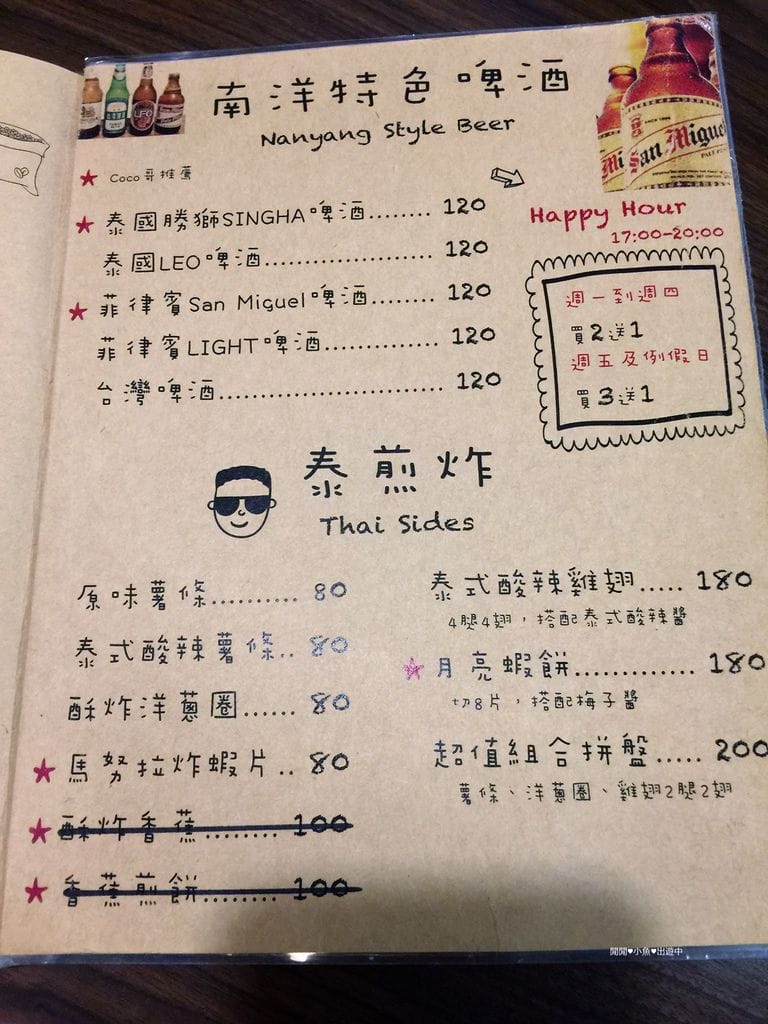 南洋特色啤酒
Nanyang Style Beer
SINCE 1890
San Miguel
Mi
LEO
Coco哥推薦
泰國勝獅SINGHA啤酒........ 120
泰國LEO啤酒...................... 120
菲律賓San Miguel啤酒........ 120
菲律賓LIGHT啤酒.............. 120
台灣啤酒............................ 120
Happy Hour
17:00-20:00
週一到週四
買2送1
週五及例假日
買3送1
泰煎炸
Thai Sides
原味薯條.......... 80
泰式酸辣薯條.. 80
酥炸洋蔥圈...... 80
馬努拉炸蝦片.. 80
酥炸香蕉........ 100
香蕉煎餅........ 100
泰式酸辣雞翅..... 180
4腿4翅，搭配泰式酸辣醬
月亮蝦餅............. 180
切8片，搭配梅子醬
超值組合拼盤..... 200
薯條、洋蔥圈、雞翅2腿2翅
閒閒♥小魚♥出遊中